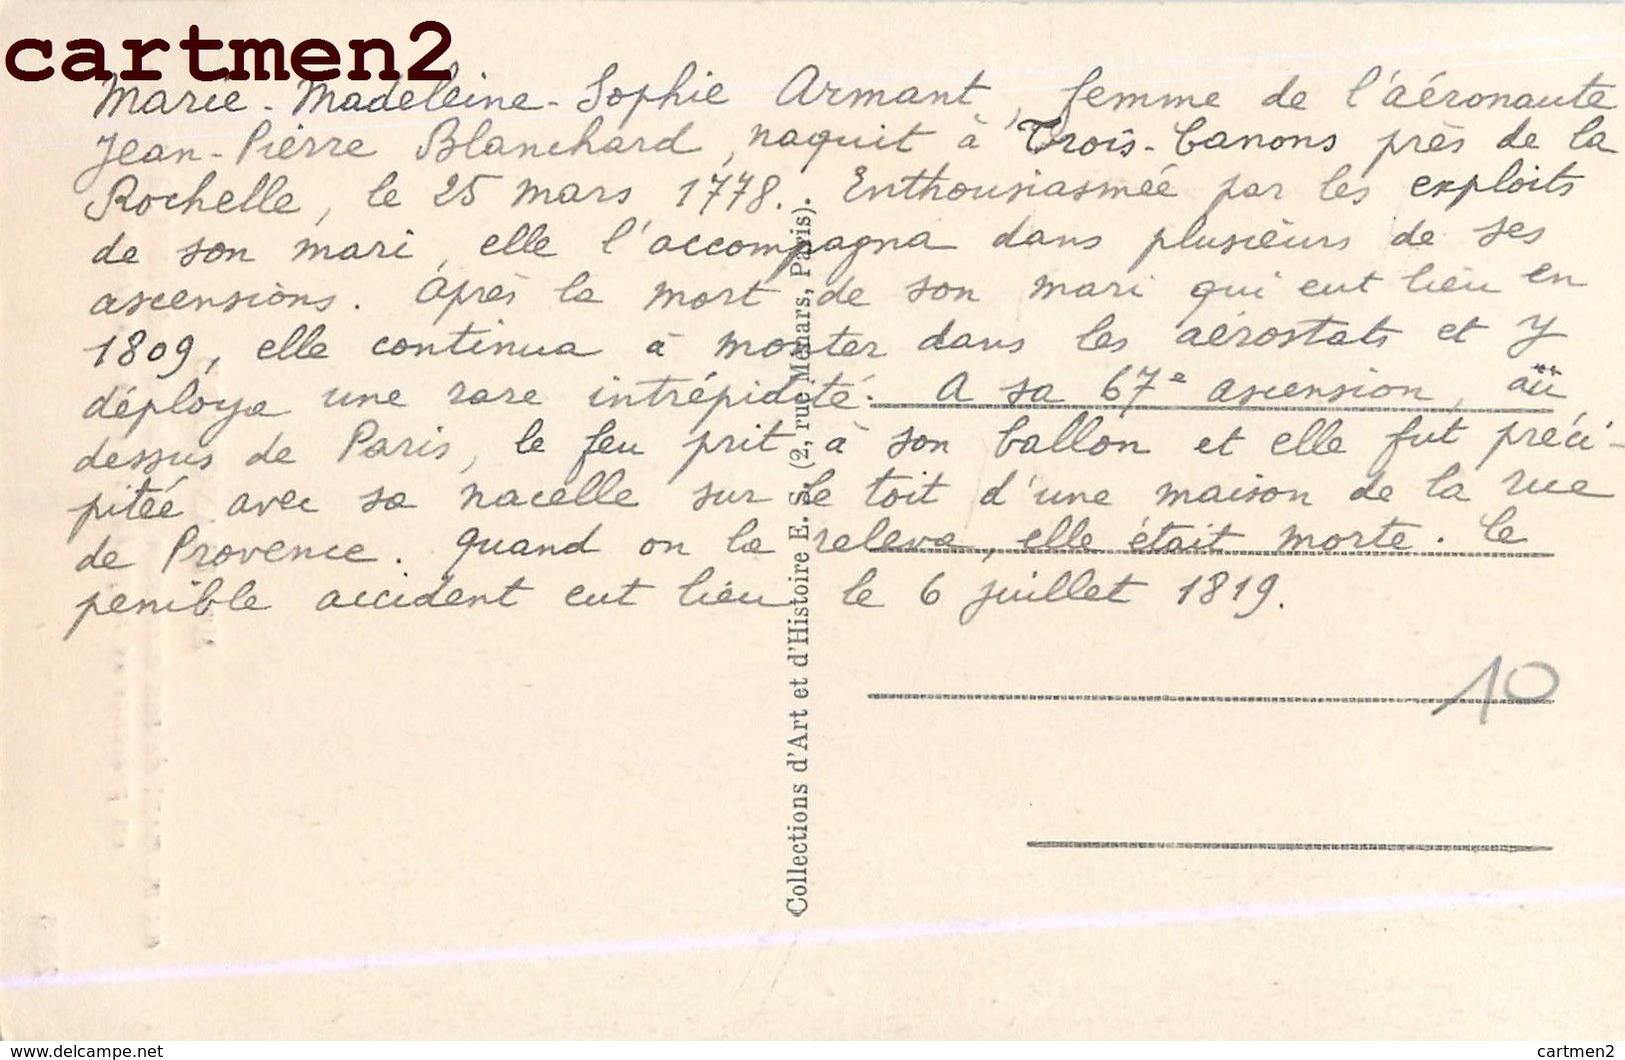 cartmen2
Marie-Madeleine-Sophie Armant, femme de l'aéronaute
Jean-Pierre Blanchard, naquit à Trois-Canons près de la
Rochelle, le 25 mars 1778. Enthousiasmée par les exploits
de son mari, elle l'accompagna dans plusieurs de ses
ascensions. Après la mort de son mari qui eut lieu en
1809, elle continua à monter dans les aérostats et y
déploya une rare intrépidité. A sa 67e ascension, au
dessus de Paris, le feu prit à son ballon et elle fut préci-
pitée avec sa nacelle sur le toit d'une maison de la rue
de Provence. Quand on la releva, elle était morte. Le
pénible accident eut lieu le 6 juillet 1819.
10
Collections d'Art et d'Histoire E. S. (2, rue Ménars, Paris).
www.delcampe.net
cartmen2